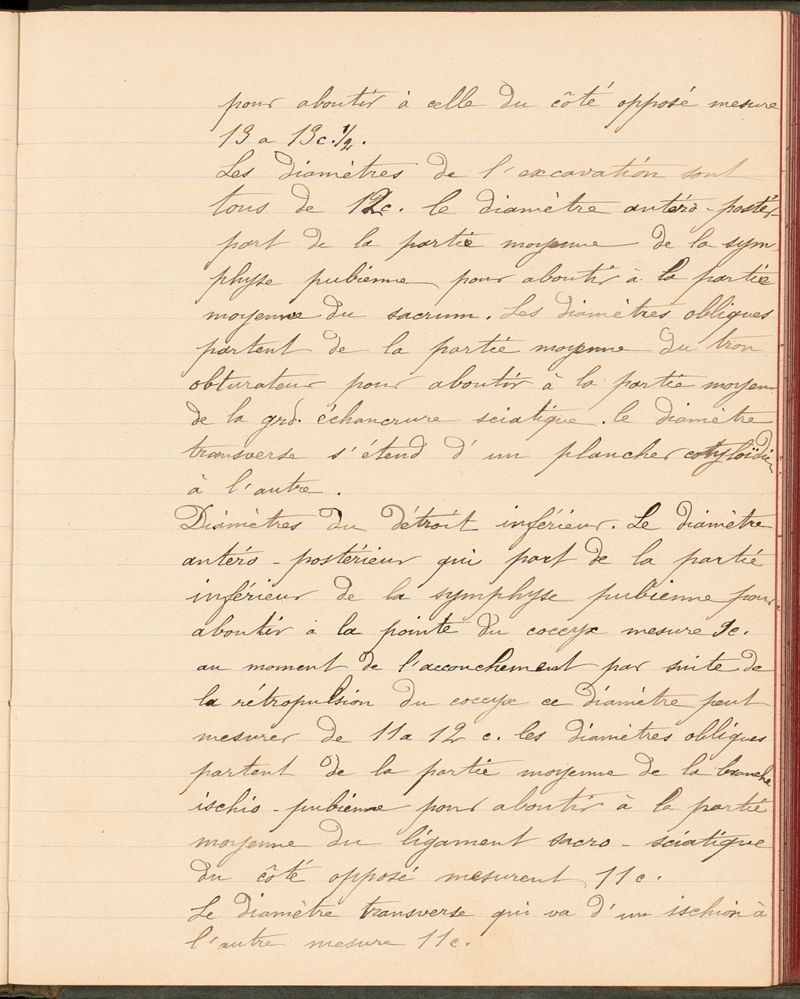 pour aboutir à celle du côté opposé mesure
13 a 13c.½.
Les diamètres de l'excavation sont
tous de 12c. le diamètre antéro-postér-
part de la partie moyenne de la sym-
physe pubienne pour aboutir à la partie
moyenne du sacrum. Les diamètres obliques
partent de la partie moyenne du trou
obturateur pour aboutir à la partie moyenn
de la grd. échancrure sciatique. le diamètre
transverse s'étend d'un plancher cotyloïdien
à l'autre.
Diamètres du détroit inférieur. Le diamètre
antéro-postérieur qui part de la partie
inférieur de la symphyse pubienne pour
aboutir à la pointe du coccyx mesure 9c.
au moment de l'accouchement par suite de
la rétropulsion du coccyx ce diamètre peut
mesurer de 11a 12 c. les diamètres obliques
partent de la partie moyenne de la branche
ischio-pubienne pour aboutir à la partie
moyenne du ligament sacro-sciatique
du côté opposé mesurent 11c.
Le diamètre transverse qui va d'un ischion à
l'autre mesure 11c.